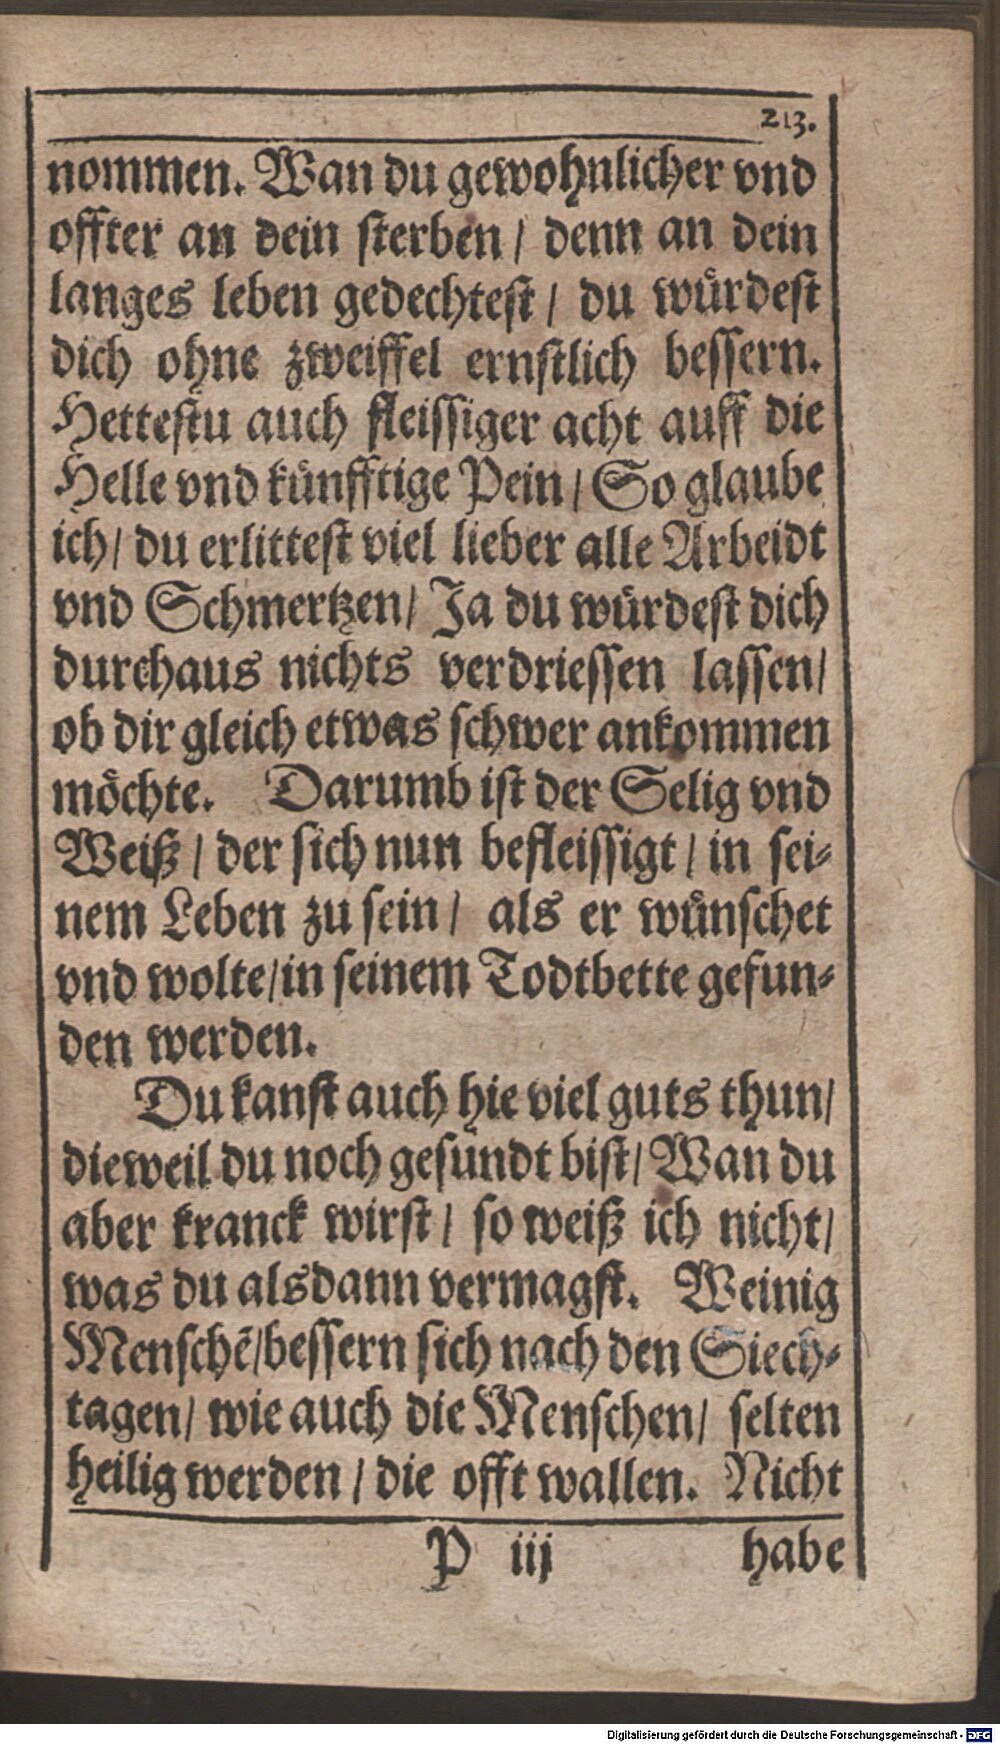 213.
nommen. Wan du gewohnlicher vnd
offter an dein sterben / denn an dein
langes leben gedechtest / du wuͤrdest
dich ohne zweiffel ernstlich bessern.
Hettestu auch fleissiger acht auff die
Helle vnd kuͤnfftige Pein / So glaube
ich / du erlittest viel lieber alle Arbeidt
vnd Schmertzen / Ja du wuͤrdest dich
durchaus nichts verdriessen lassen /
ob dir gleich etwas schwer ankommen
moͤchte. Darumb ist der Selig vnd
Weiß / der sich nun befleissigt / in sei-
nem Leben zu sein / als er wuͤnschet
vnd wolte / in seinem Todtbette gefun-
den werden.
Du kanst auch hie viel guts thun /
dieweil du noch gesundt bist / Wan du
aber kranck wirst / so weiß ich nicht /
was du alsdann vermagst. Weinig
Menschē / bessern sich nach den Siech-
tagen / wie auch die Menschen / selten
heilig werden / die offt wallen. Nicht
P iij habe
Digitalisierung gefördert durch die Deutsche Forschungsgemeinschaft - DFG